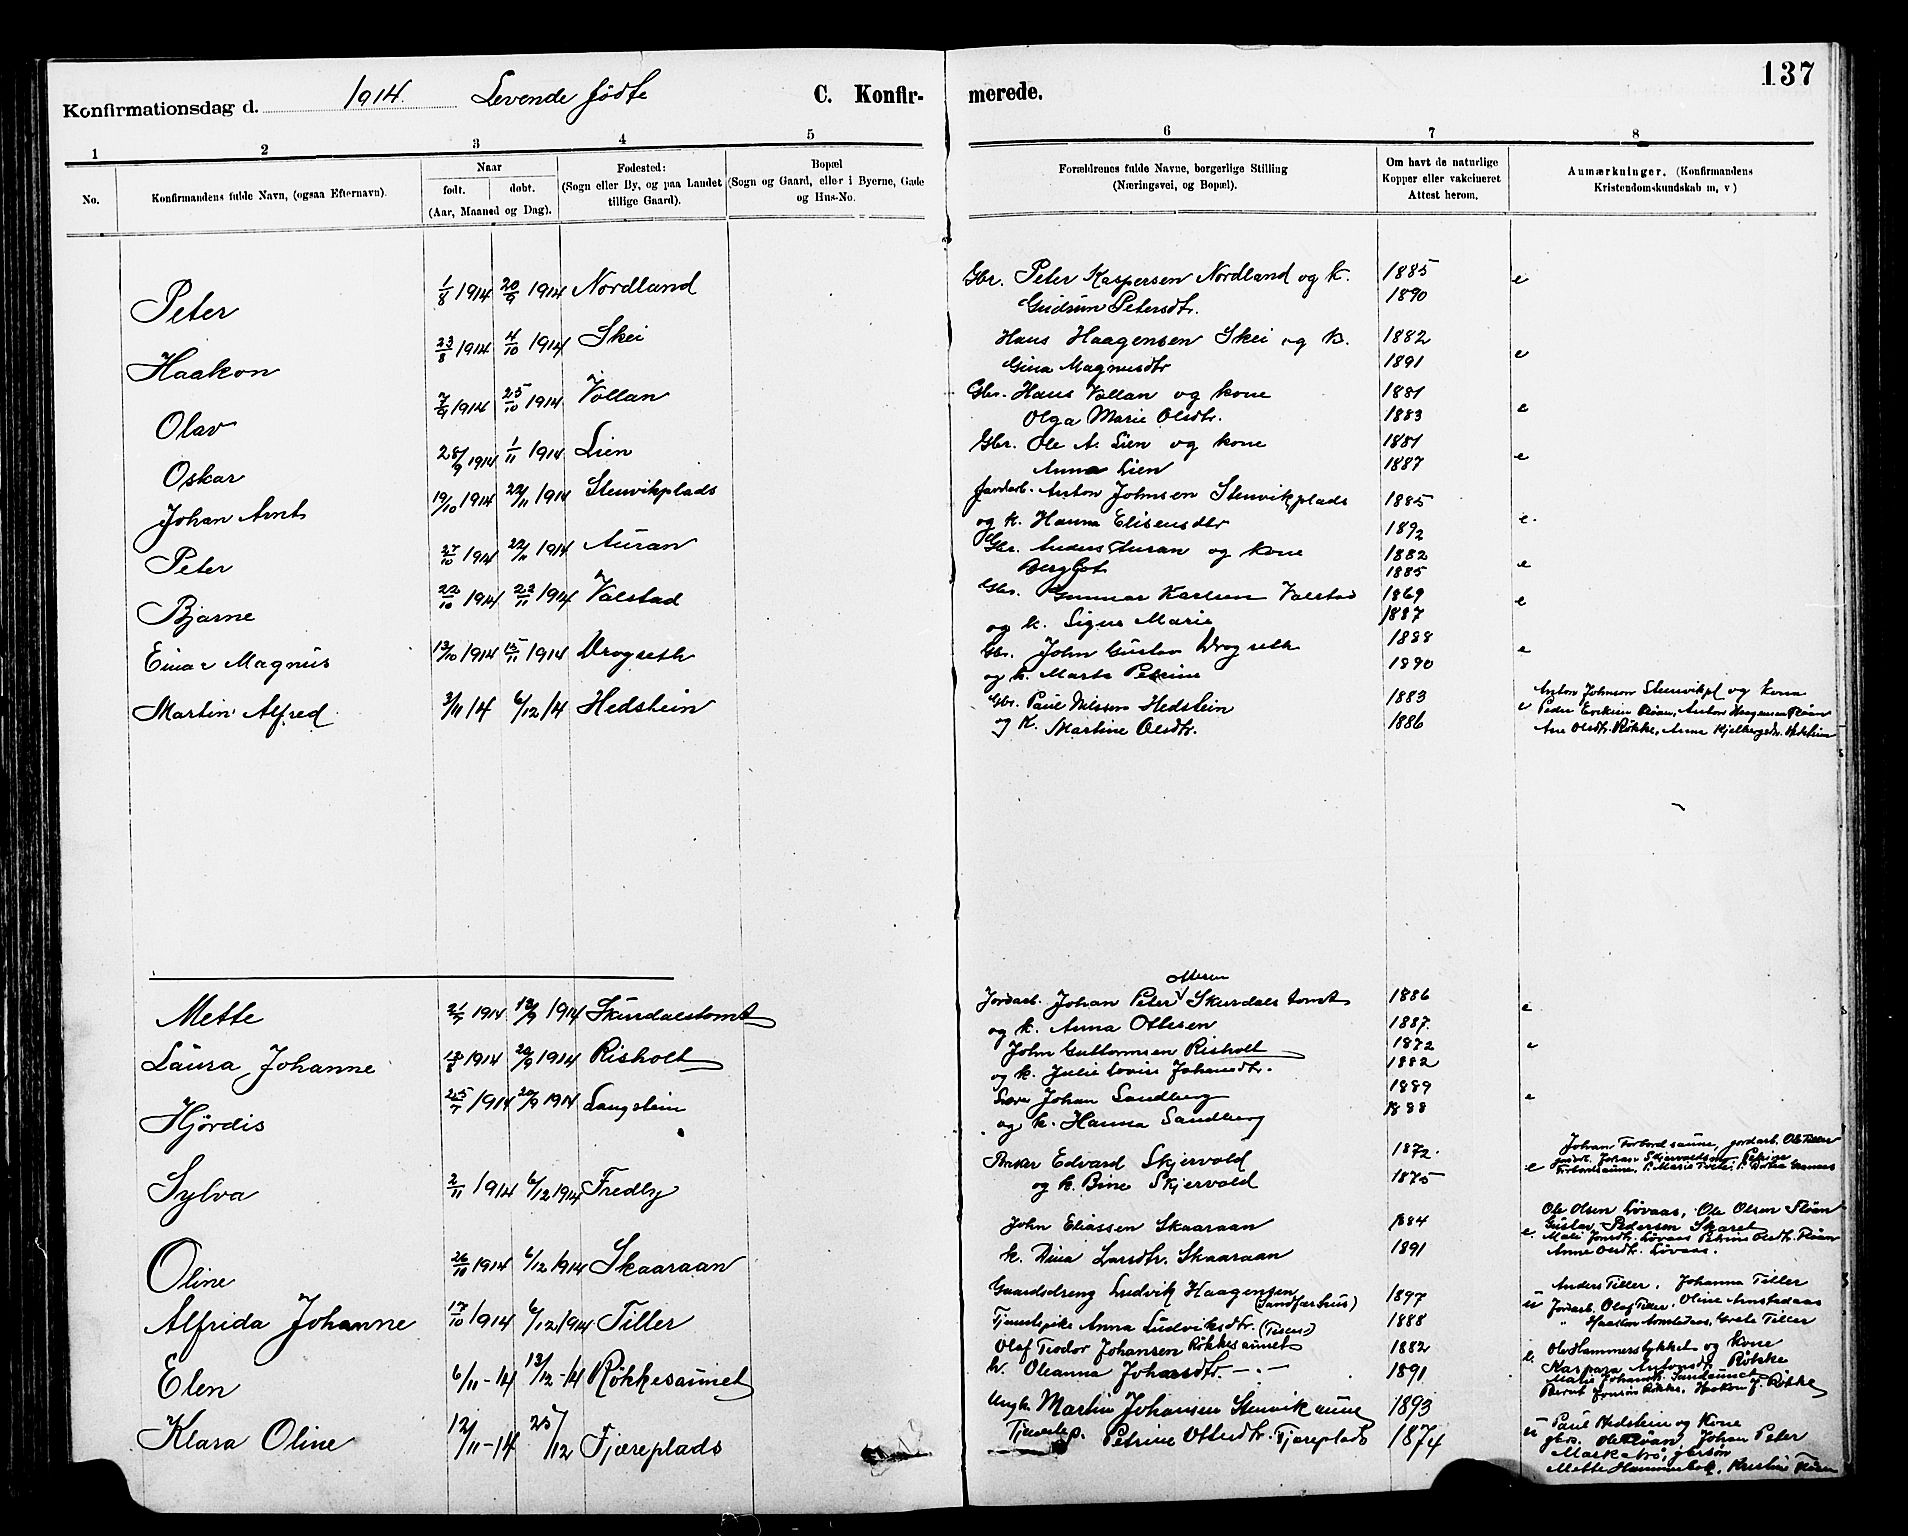 137
Konfirmationsdag d. 1914. Levende fødte C. Konfir- merede.
1 2 3 4 5 6 7 8
No.
Konfirmandens fulde Navn, (ogsaa Efternavn).
Naar
født. døbt.
(Aar, Maaned og Dag).
Fødested:
(Sogn eller By, og paa Landet
tillige Gaard).
Bopæl
(Sogn og Gaard, eller i Byerne, Gade
og Hus-No.
Forældrenes fulde Navne, borgerlige Stilling
(Næringsvei, og Bopæl).
Om havt de naturlige
Kopper eller vakcineret
Attest herom.
Anmærkninger. (Konfirmandens
Kristendomskundskab m, v)
Peter 1/8 1914 20/9 1914 Nordland Gbr. Peter Kaspersen Nordland og k. 1885 e
Gudrun Petersdtr. 1890
Haakon 23/8 1914 4/10 1914 Skei Hans Haagensen Skei og k. 1882 e
Gina Magnusdtr 1891
Olav 7/9 1914 25/10 1914 Vollan Gbr. Hans Vollan og kone 1881 e
Olga Marie Olsdtr. 1883
Oskar 28/9 1914 1/11 1914 Lien Gbr. Ole A. Lien og kone 1881 e
Anna Lien 1887
Johan Arnt 19/10 1914 22/11 1914 Stenvikplads Jordarb. Anton Johnsen Stenvikplads 1885 e.
og k. Hanna Elisensdtr 1892
Peter 27/10 1914 22/11 1914 Auran Gbr. Anders Auran og kone 1882 e
Bergljot 1885
Bjarne 22/10 1914 22/11 1914 Valstad Gbr. Gunnar Karlsen Valstad 1869 e
og k. Signe Marie 1887
Einar Magnus 13/10 1914 15/11 1914 Drogseth Gbr. John Gustav Drogseth 1888 e
og k. Marta Petrine 1890
Martin Alfred 3/11 14 6/12 14 Hedstein Gbr. Paul Nilssen Hedstein 1883 e
og k. Martine Olsdtr. 1886
Anton Johnson Stenvikpl og kona
Peder Eriksen Røan, Anton Haagensen Røan
Ane Olsdtr. Røkke, Anna Kjelbergsdtr. Hedstein
Mette 21/7 1914 13/9 1914 Skurdalstomt Jordarb. Johan Peter Ottesen Skurdalstomt 1886 e
og k. Anna Ottesen 1887.
Laura Johanne 18/8 1914 20/9 1914 Risholt John Guttormsen Risholt 1872 e
og k. Julie Lovise Johansdtr. 1882
Hjørdis 25/7 1914 20/9 1914 Langstein Lærer Johan Sandberg 1889 e
og k. Hanna Sandberg 1888
Sylva 2/11 1914 6/12 1914 Fredly Edvard Skjervold 1872. e
og k. Bine Skjervold 1875
Johan Forbordsaune, jordarb. Ole Tiller
Oline 26/10 1914 6/12 1914 Skaaraan John Eliassen Skaaraan 1884 e.
k. Dina Larsdtr. Skaaraan 1891
Ole Olsen Løvaas, Ole Olsen Røan
Gustav Pedersen Skaret
Mali Jonsdtr. Løvaas Petrine Olsdtr. Røan
Anne Olsdtr. Løvaas.
Alfrida Johanne 17/10 1914 6/12 1914 Tiller Gaardsdreng Ludvik Haagensen (Sandfærhus) 1897 u
Tjenestepike Anna Ludviksdtr. (Tiller) 1888
Anders Tiller. Johanna Tiller
Jordarb. Olaf Tiller. Oline Arnstadaas
" Haakon Arnstadaas, Grete Tiller
Elen 6/11-14 13/12-14 Røkkesaunet Olaf Teodor Johansen Røkkesaunet 1882 e.
k. Oleanna Johansdtr. -"- 1891
Ole Hammersbykket og Kone
Kaspara Antonsdtr. Røkke
Bernt Jonsøn Røkke. Haakon J. Røkke
Klara Oline 12/11-14 25/12 Fjæreplads Ungk. Martin Johansen Stenvikaune 1893 u
Tjenestep. Petrine Ottesdtr. Fjæreplads 1874
Paul Hedstein og Kone
gbr. Ole Røan, Johan Peter
Mette Hammerbek, Kristine Røan